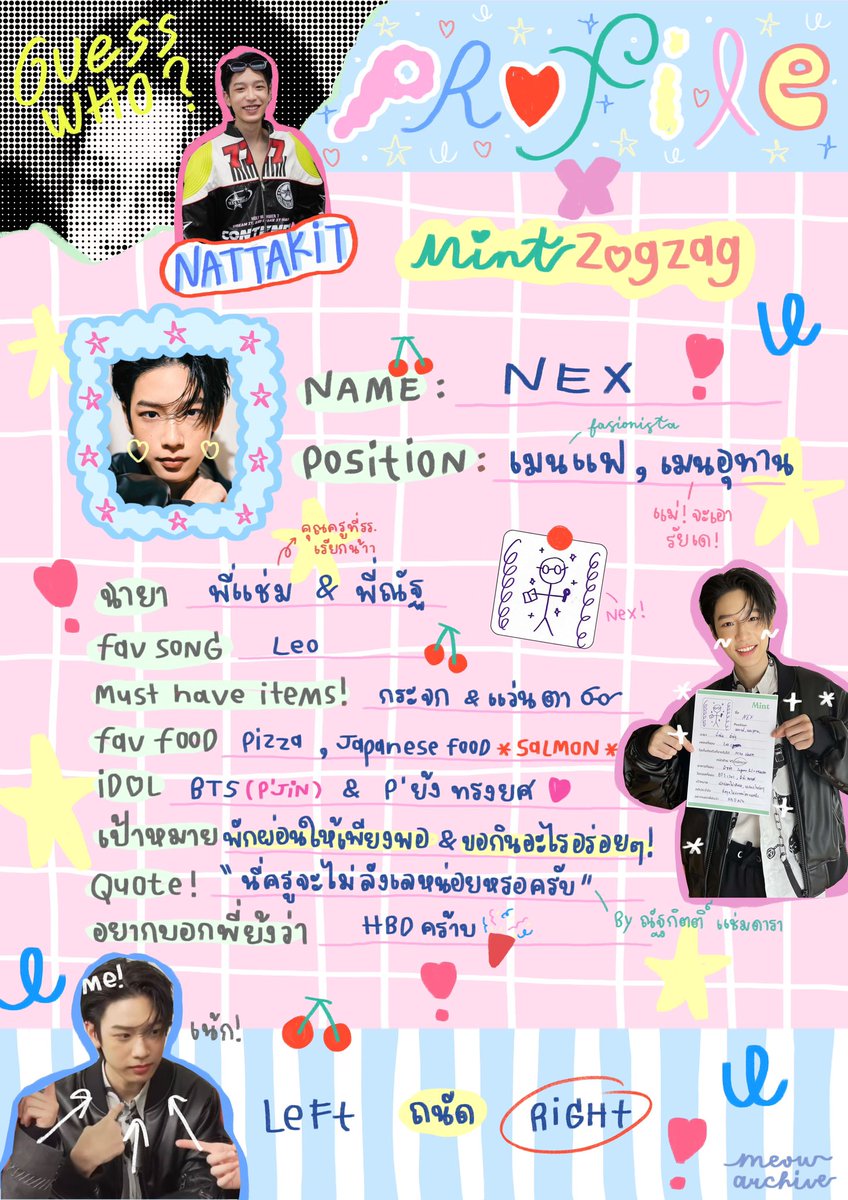 Guess
WHO?
PROFILE
777
NATTAKIT
X
Mint Zogzag
NAME: NEX
fasionista
POSITION: เมนแฟ, เมนอุทาน
แม่! จะเอา
รัยเด!
คุณครูที่รร.
เรียกน้าา
ฉายา พี่แช่ม & พี่ณัฐ
Nex!
fav SONG Leo
Must have items! กระจก & แว่นตา
fav FOOD Pizza, Japanese FOOD *SALMON*
iDOL BTS (P'JiN) & P'ย้ง ทรงยศ
Mint
NEX
เป้าหมาย พักผ่อนให้เพียงพอ & ขอกินอะไรอร่อยๆ!
Quote! "นี่ครูจะไม่ลังเลหน่อยหรอครับ"
By ณัฐกิตติ์ แช่มดารา
อยากบอกพี่ย้งว่า HBD คร้าบ
Me!
เน้ก!
Left ถนัด RiGHt
meow
archive